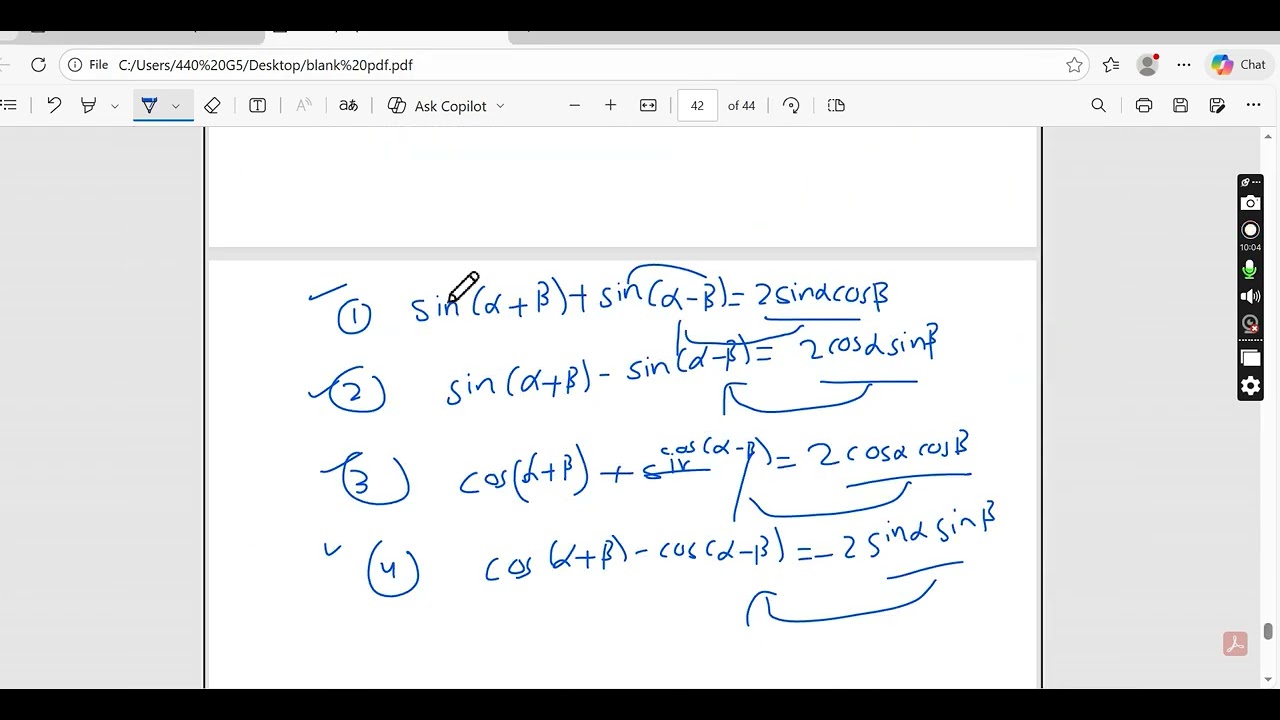 File C:/Users/440%20G5/Desktop/blank%20pdf.pdf Chat
aあ Ask Copilot 42 of 44
10:04
① sin(α+β)+sin(α-β)=2sinαcosβ
② sin(α+β)-sin(α-β)= 2cosαsinβ
③ cos(α+β)+ cos(α-β)=2cosα cosβ
④ cos(α+β)-cos(α-β)=-2sinα sinβ